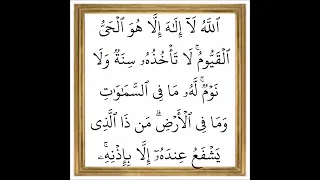 ٱللَّهُ لَآ إِلَـٰهَ إِلَّا هُوَ ٱلْحَىُّ
ٱلْقَيُّومُ ۚ لَا تَأْخُذُهُۥ سِنَةٌ وَلَا
نَوْمٌ ۚ لَّهُۥ مَا فِى ٱلسَّمَـٰوَٰتِ
وَمَا فِى ٱلْأَرْضِ ۗ مَن ذَا ٱلَّذِى
يَشْفَعُ عِندَهُۥٓ إِلَّا بِإِذْنِهِۦ ۚ